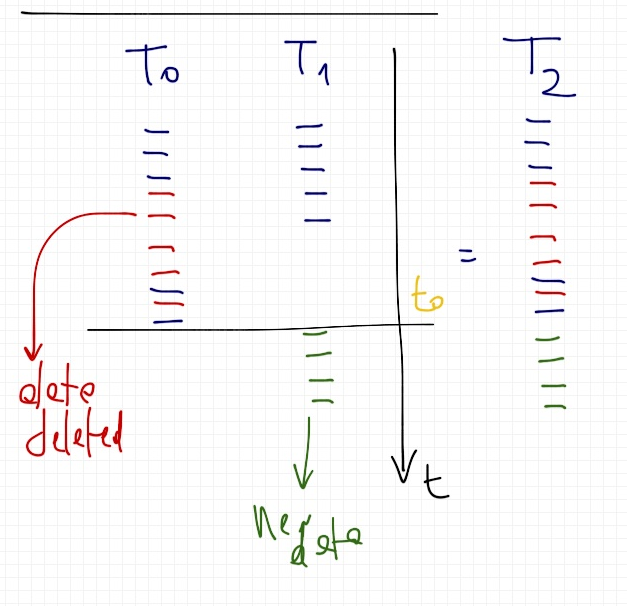 T₀ T₁ T₂
=
t₀
data
deleted
t
new
data